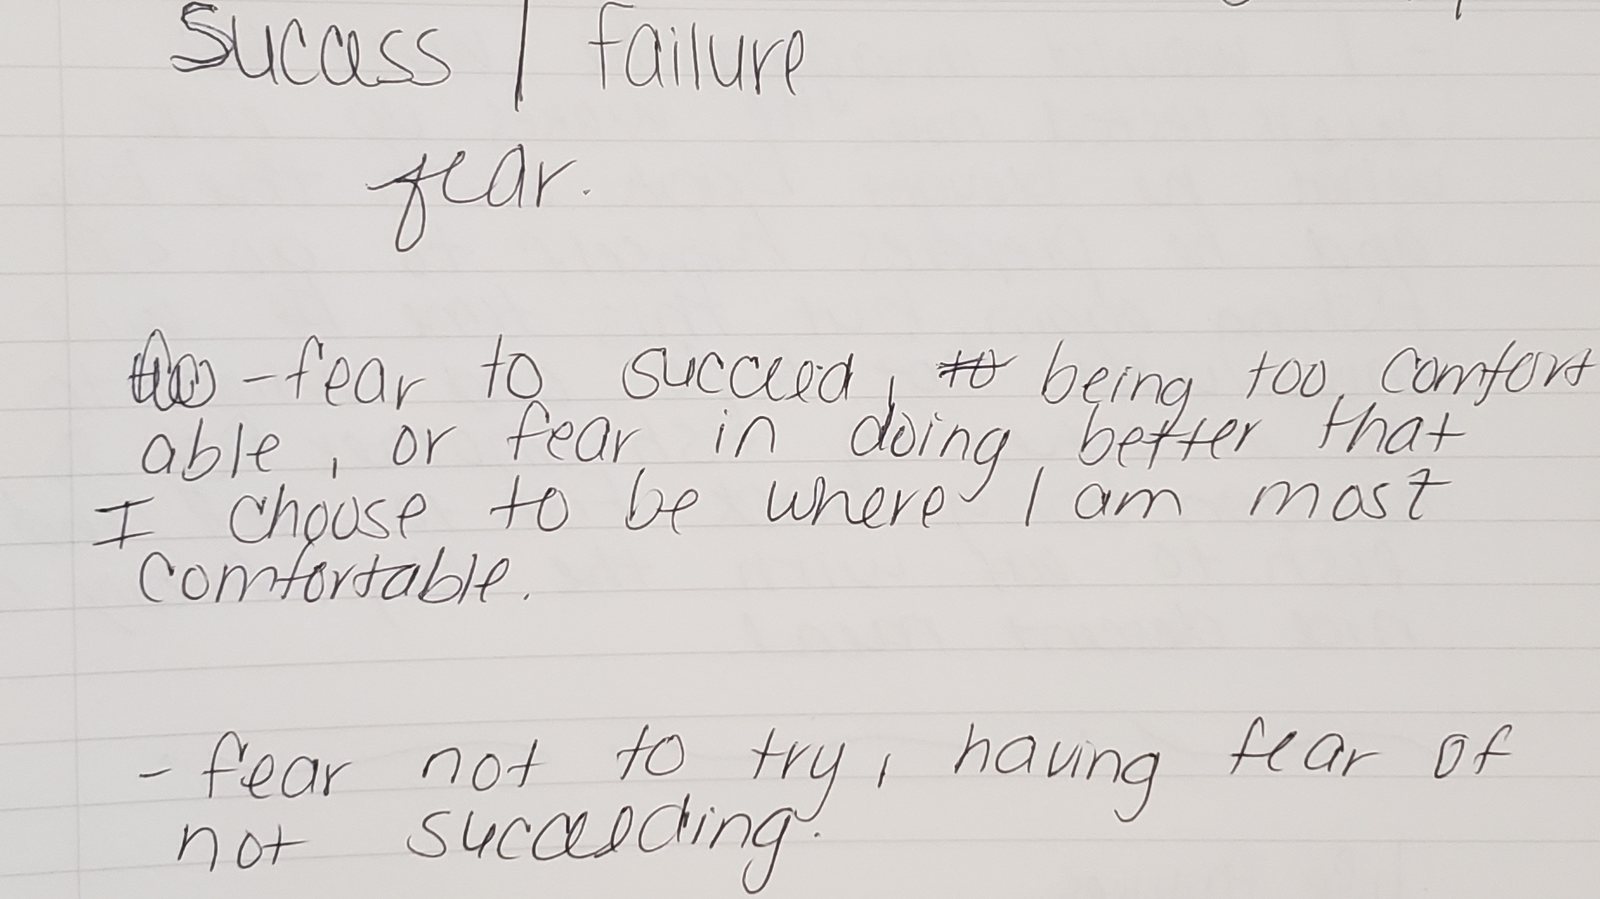 Success | failure
fear.
- fear to succeed, being too comfort
able, or fear in doing better that
I choose to be where I am most
comfortable.
- fear not to try, having fear of
not succeeding.